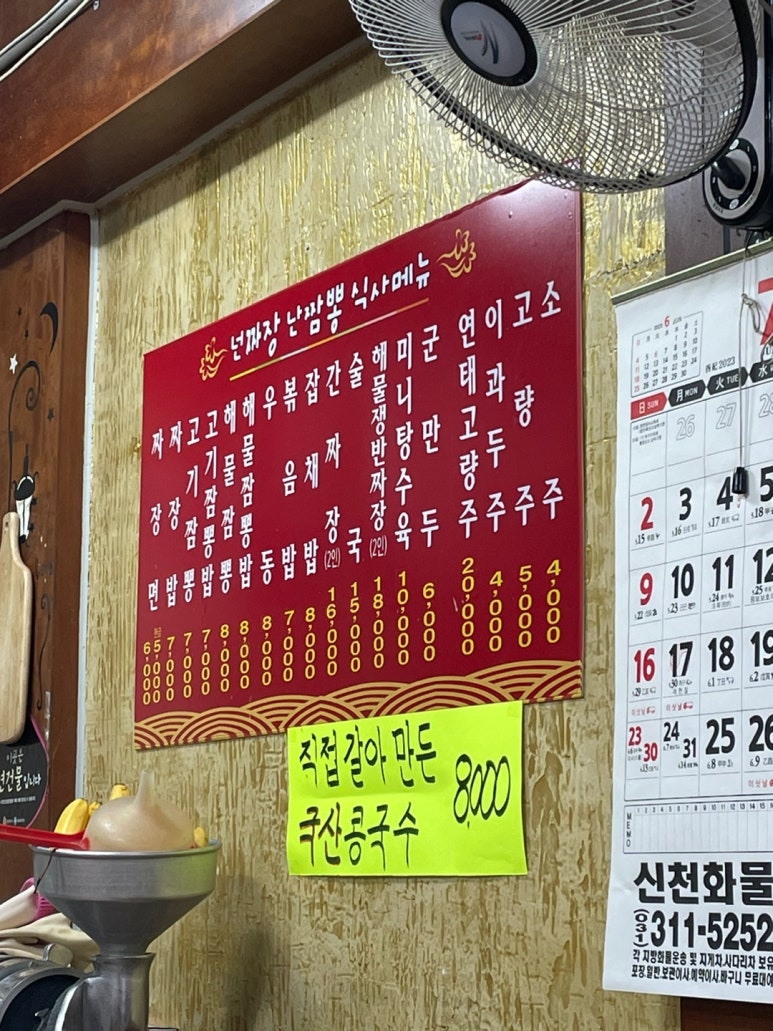 넌짜장 난짬뽕 식사메뉴
짜장면 6,000 현금 5,000
짜장밥 7,000
고기짬뽕 7,000
고기짬뽕밥 7,000
해물짬뽕 8,000
해물짬뽕밥 8,000
우동 8,000
볶음밥 7,000
잡채밥 8,000
간짜장(2인) 16,000
술국 15,000
해물쟁반짜장(2인) 18,000
미니탕수육 10,000
군만두 6,000
연태고량주 20,000
이과두주 4,000
고량주 5,000
소주 4,000
직접 갈아 만든
국산콩국수 8,000
6 JUN
西紀 2023
日 SUN 月 MON 火 TUE 水
26 27 28
2 3 4 5
9 10 11 12
16 17 18 19
23 30 24 31 25 26
MEMO
신천화물
(031) 311-5252
각 지방화물운송 및 지게차.사다리차 보유
포장.일반.보관이사.예약이사.바구니 무료대여
이곳은
연건물입니다